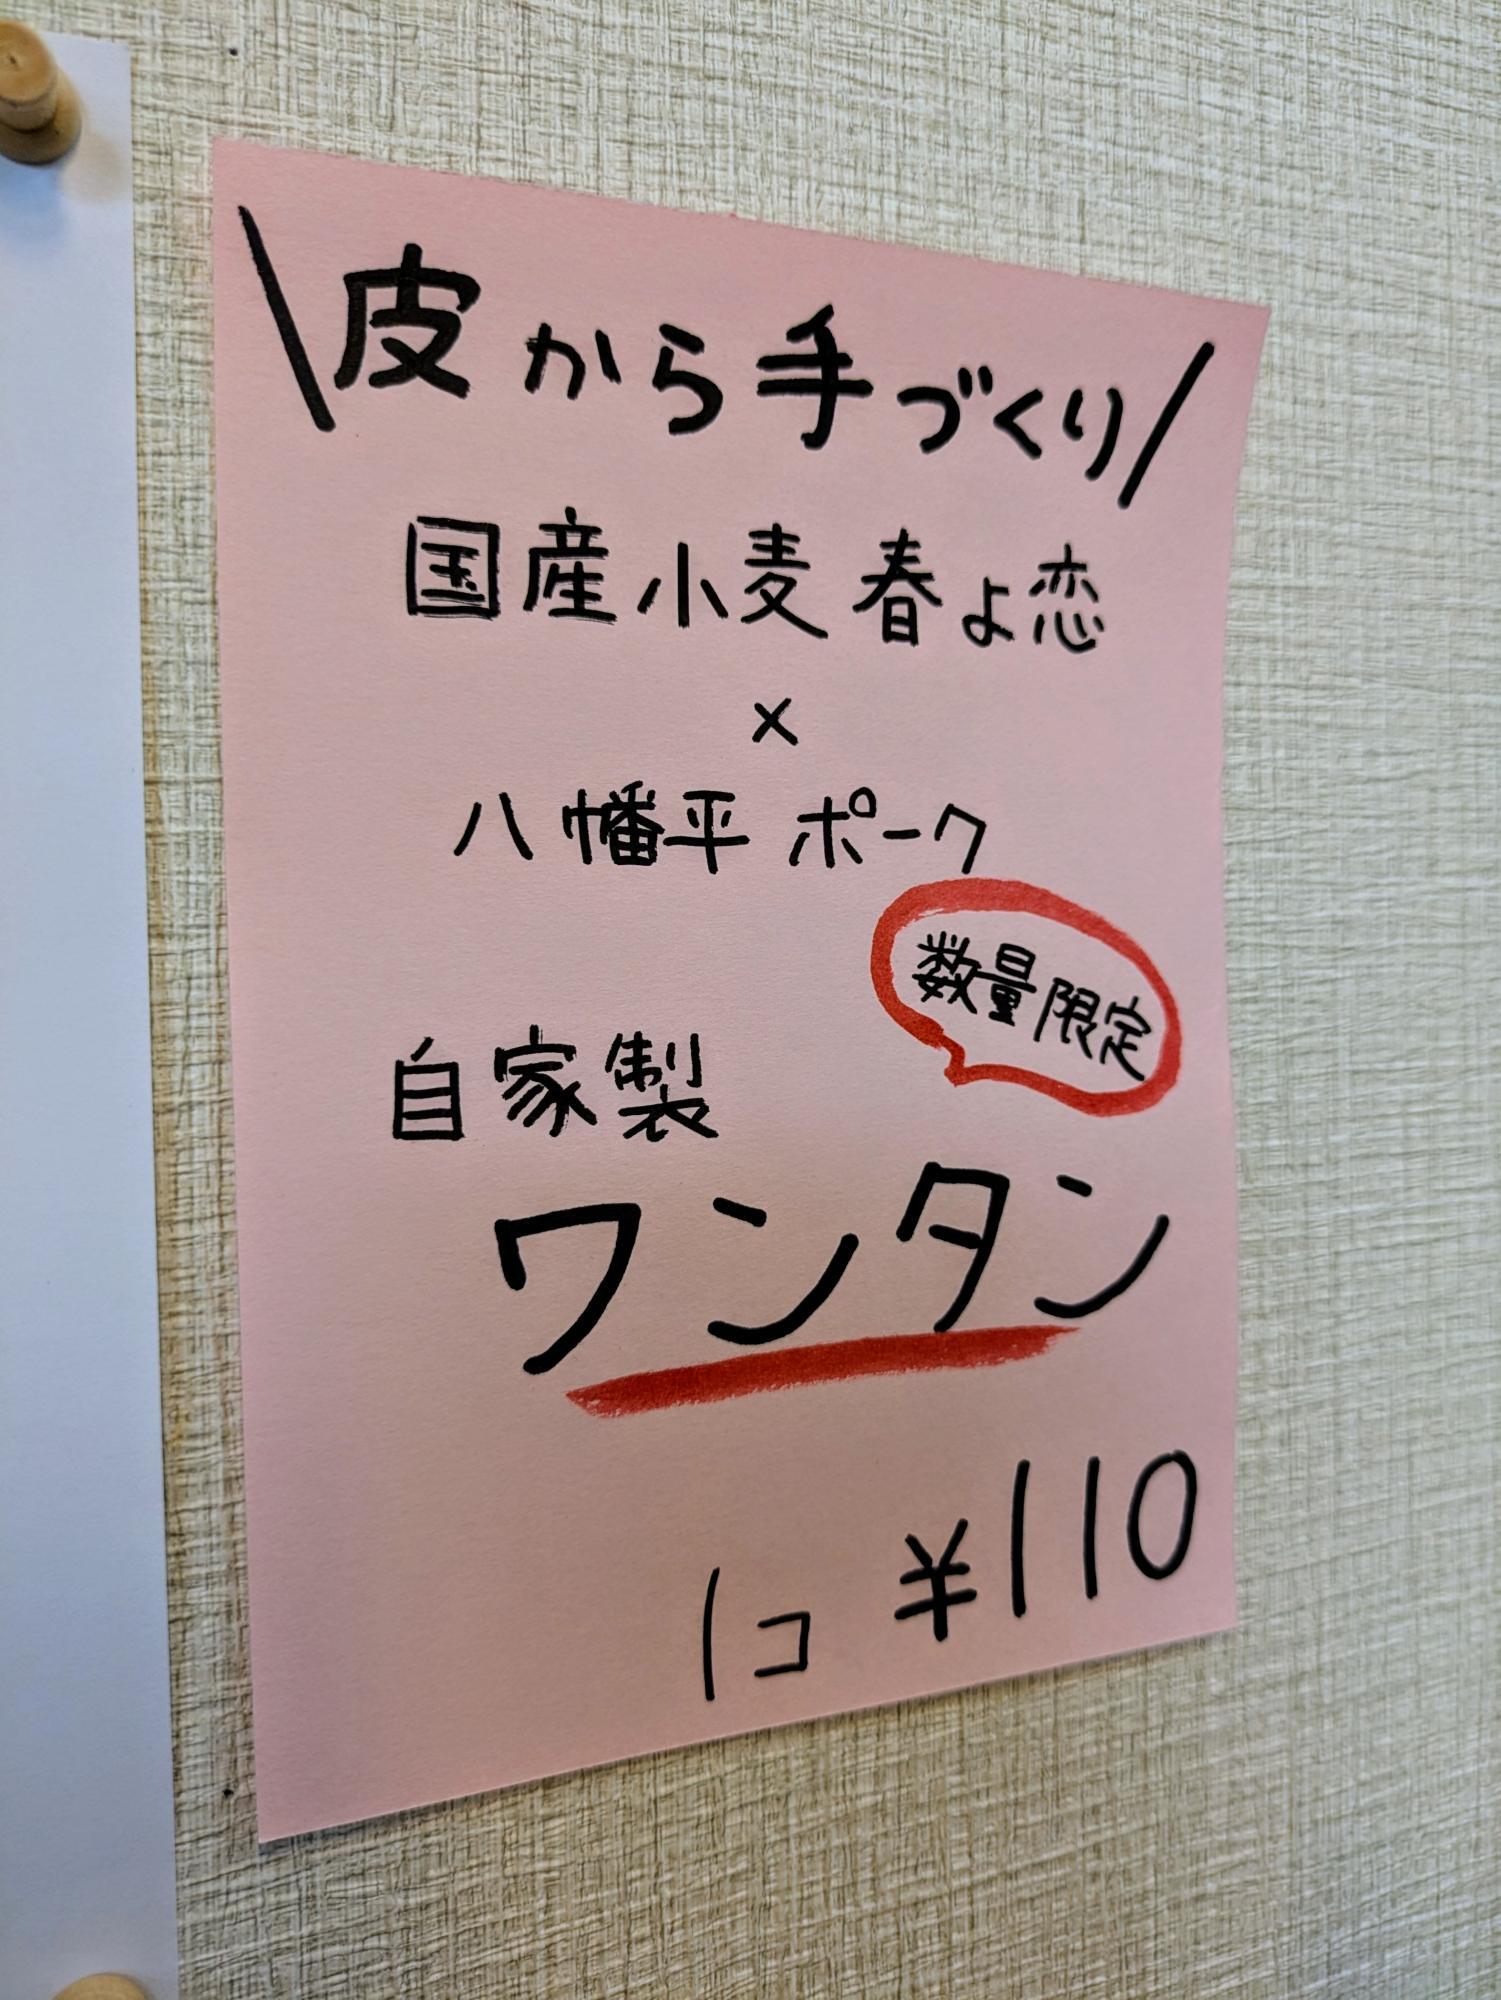 \皮から手づくり/
国産小麦 春よ恋
×
八幡平ポーク
数量限定
自家製
ワンタン
1コ ¥110